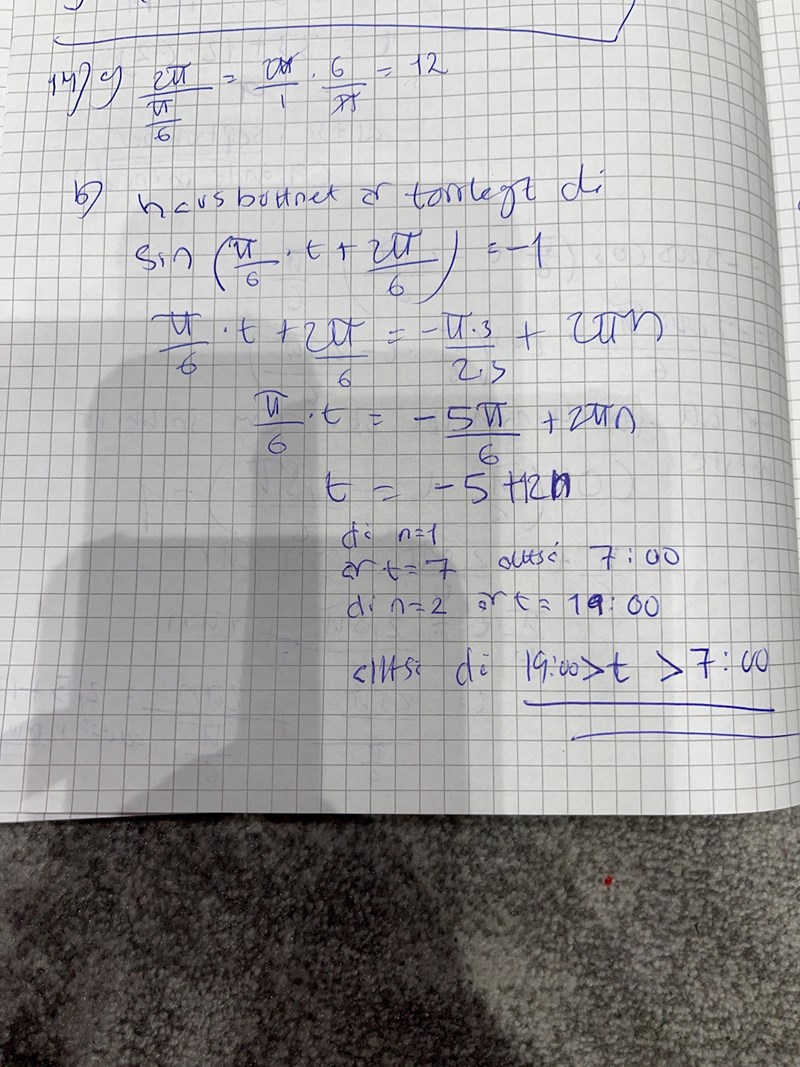 14) a) 2π/(π/6) = 2π/1 · 6/π = 12
b) havsbottnet är torrlagt då
Sin (π/6 · t + 2π/6) = -1
π/6 · t + 2π/6 = -π·3/2·3 + 2πn
π/6 · t = -5π/6 + 2πn
t = -5 + 12n
då n=1
är t=7 alltså 7:00
då n=2 är t= 19:00
alltså då 19:00>t >7:00